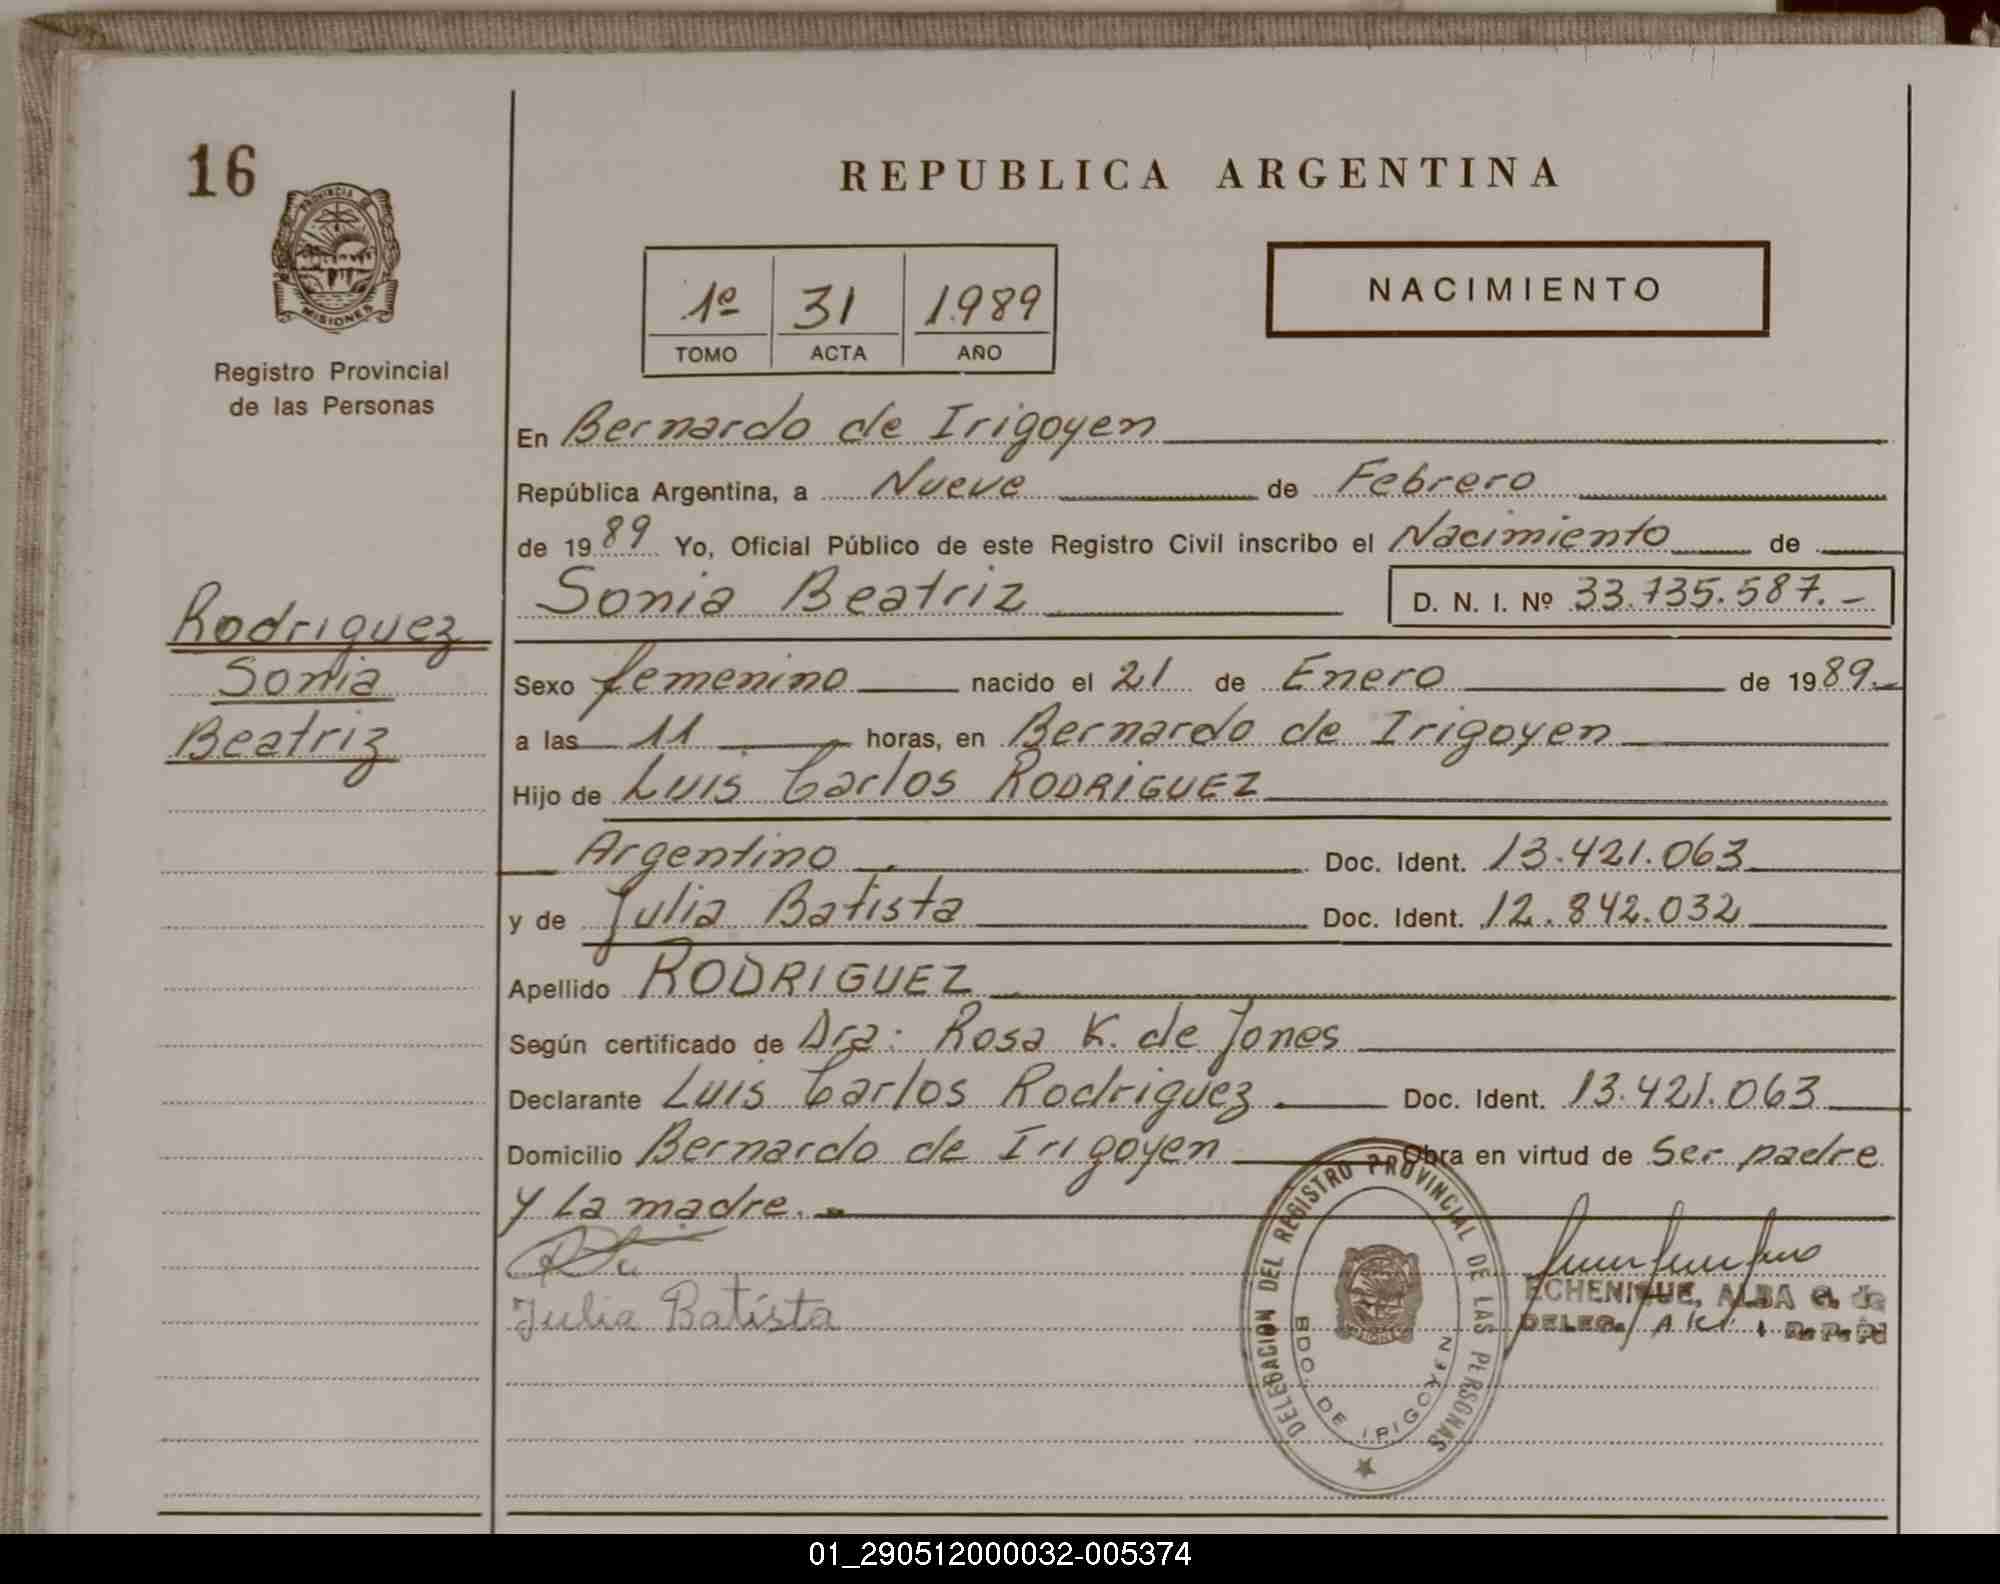 16
PROVINCIA DE
MISIONES
Registro Provincial
de las Personas
REPUBLICA ARGENTINA
1º 31 1.989
TOMO ACTA AÑO
NACIMIENTO
En Bernardo de Irigoyen
República Argentina, a Nueve de Febrero
de 1989 Yo, Oficial Público de este Registro Civil inscribo el Nacimiento de
Sonia Beatriz D. N. I. Nº 33.735.587.-
Rodriguez
Sonia
Beatriz
Sexo femenino nacido el 21 de Enero de 1989.-
a las 11 horas, en Bernardo de Irigoyen
Hijo de Luis Carlos RODRIGUEZ
Argentino Doc. Ident. 13.421.063
y de Julia Batista Doc. Ident. 12.842.032
Apellido RODRIGUEZ
Según certificado de Dra: Rosa K. de Jones
Declarante Luis Carlos Rodriguez Doc. Ident. 13.421.063
Domicilio Bernardo de Irigoyen Obra en virtud de Ser padre
y La madre.
Julia Batista
DELEGACION DEL REGISTRO PROVINCIAL DE LAS PERSONAS
BDO. DE IRIGOYEN
ECHENIQUE, ALBA G. de
DELEG.
01_290512000032-005374